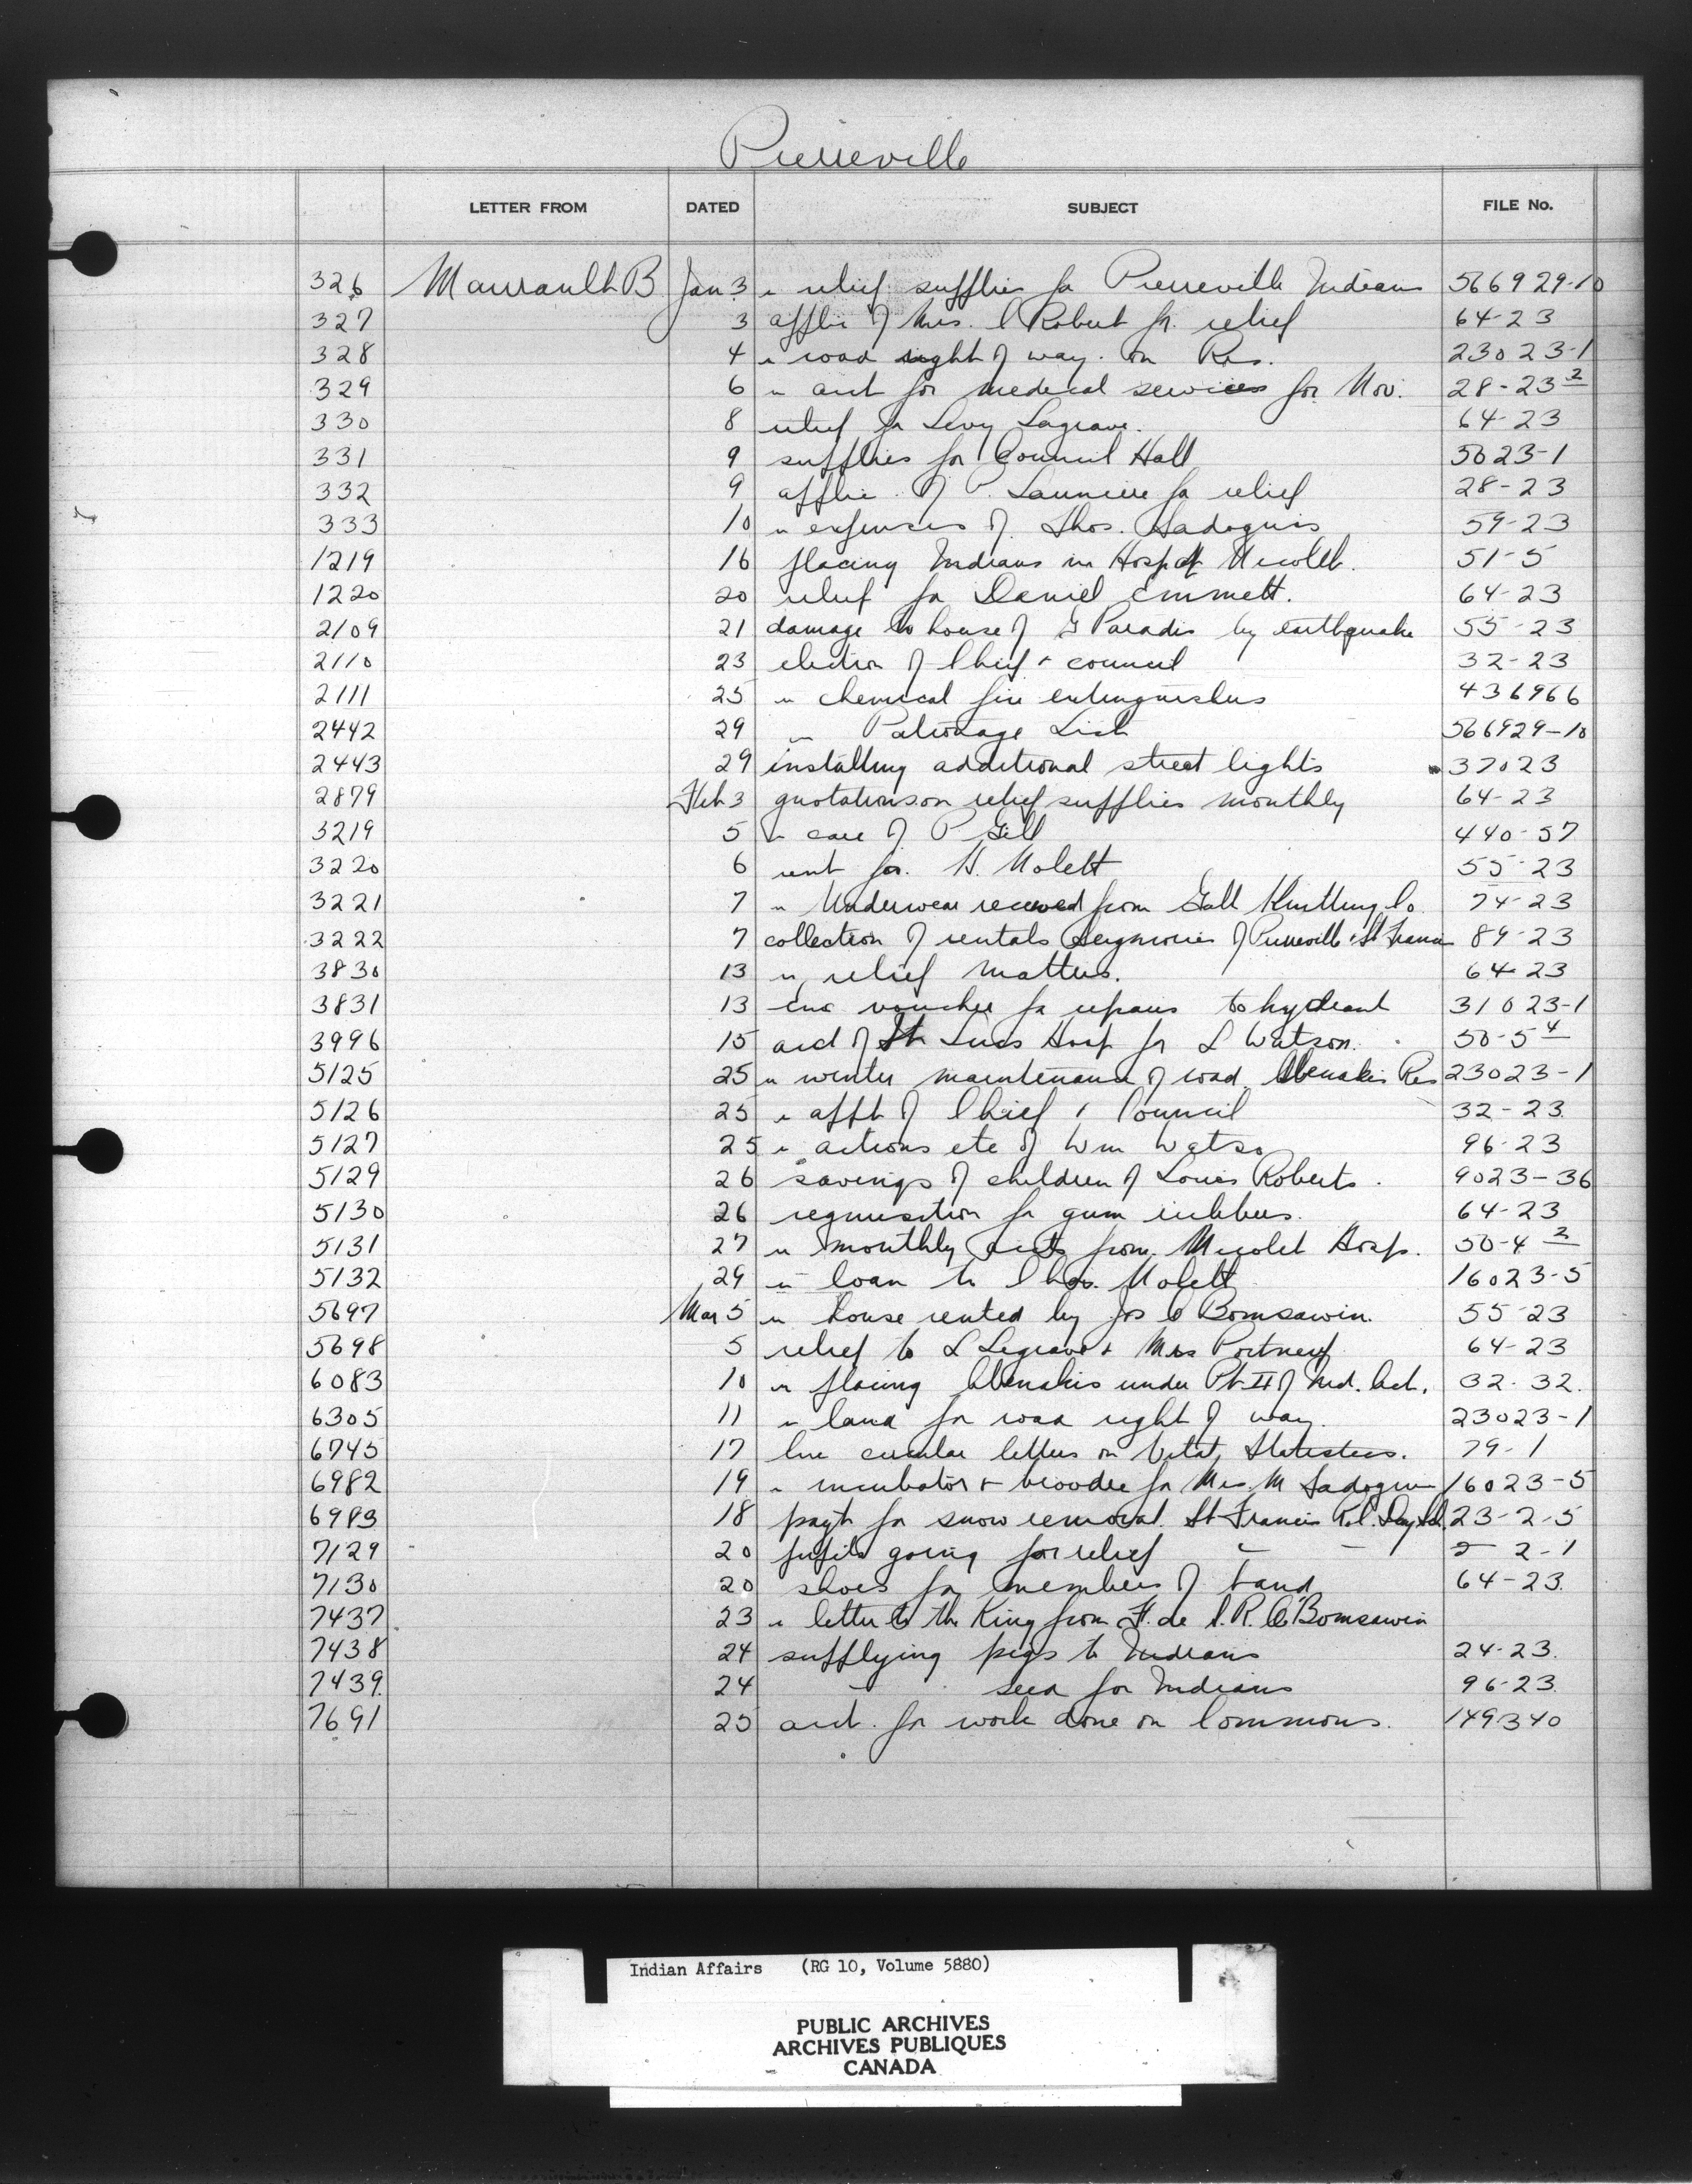 Pierreville
LETTER FROM DATED SUBJECT FILE No.
326 Maurault B Jan 3 " relief supplies for Pierreville Indians 566929-10
327 3 applic of Mrs. C Robert for relief 64-23
328 4 " road right of way on Res. 23023-1
329 6 " acct for medical services for Nov. 28-23 2
330 8 relief for Levy Lagrave. 64-23
331 9 supplies for Council Hall 5023-1
332 9 applic. of P. Launiere for relief 28-23
333 10 " expenses of Thos. Sadoquis 59-23
1219 16 placing Indians in Hosp at Nicolet. 51-5
1220 20 relief for Daniel Emmett. 64-23
2109 21 damage to house of G Paradis by earthquake 55-23
2110 23 election of Chief & council 32-23
2111 25 " chemical fire extinguishers 436966
2442 29 " Patronage List 566929-10
2443 29 installing additional street lights 37023
2879 Feb 3 quotations on relief supplies monthly 64-23
3219 5 " care of P Gill 440-57
3220 6 rent for H. Nolett 55-23
3221 7 " Underwear received from Galt Knitting Co. 74-23
3222 7 collection of rentals Seigniories of Pierreville & St Francis 89-23
3830 13 " relief matters. 64-23
3831 13 enc voucher for repairs to hydrant 31023-1
3996 15 acct of St Lucs Hosp for L Watson. 50-5 4
5125 25 " winter maintenance of road Abenakis Res 23023-1
5126 25 " appt of Chief & Council 32-23
5127 25 " actions etc of Wm Watso 96-23
5129 26 savings of children of Louis Roberts. 9023-36
5130 26 requisition for gum rubbers. 64-23
5131 27 " monthly accts from Nicolet Hosp. 50-4 2
5132 29 " loan to Chas. Nolett 16023-5
5697 Mar 5 " house rented by Jos O Bomsawin. 55-23
5698 5 relief to L Legrave & Mrs Portneuf 64-23
6083 10 " placing Abenakis under Pt II of Ind. Act. 32-32.
6305 11 " land for road right of way. 23023-1
6745 17 circular letters on Vital Statistics. 79-1
6982 19 " incubator & brooder for Mrs. M Sadoquis 16023-5
6983 18 payt for snow removal St Francis R.C. Day Sch. 23-2-5
7129 20 pupils going for relief " - 2-1
7130 20 shoes for members of band 64-23.
7437 23 " letter to the King from F. de S. R. O'Bomsawin
7438 24 supplying pigs to Indians 24-23.
7439 24 " seed for Indians 96-23.
7691 25 acct. for work done on Commons. 149340
Indian Affairs (RG 10, Volume 5880)
PUBLIC ARCHIVES
ARCHIVES PUBLIQUES
CANADA